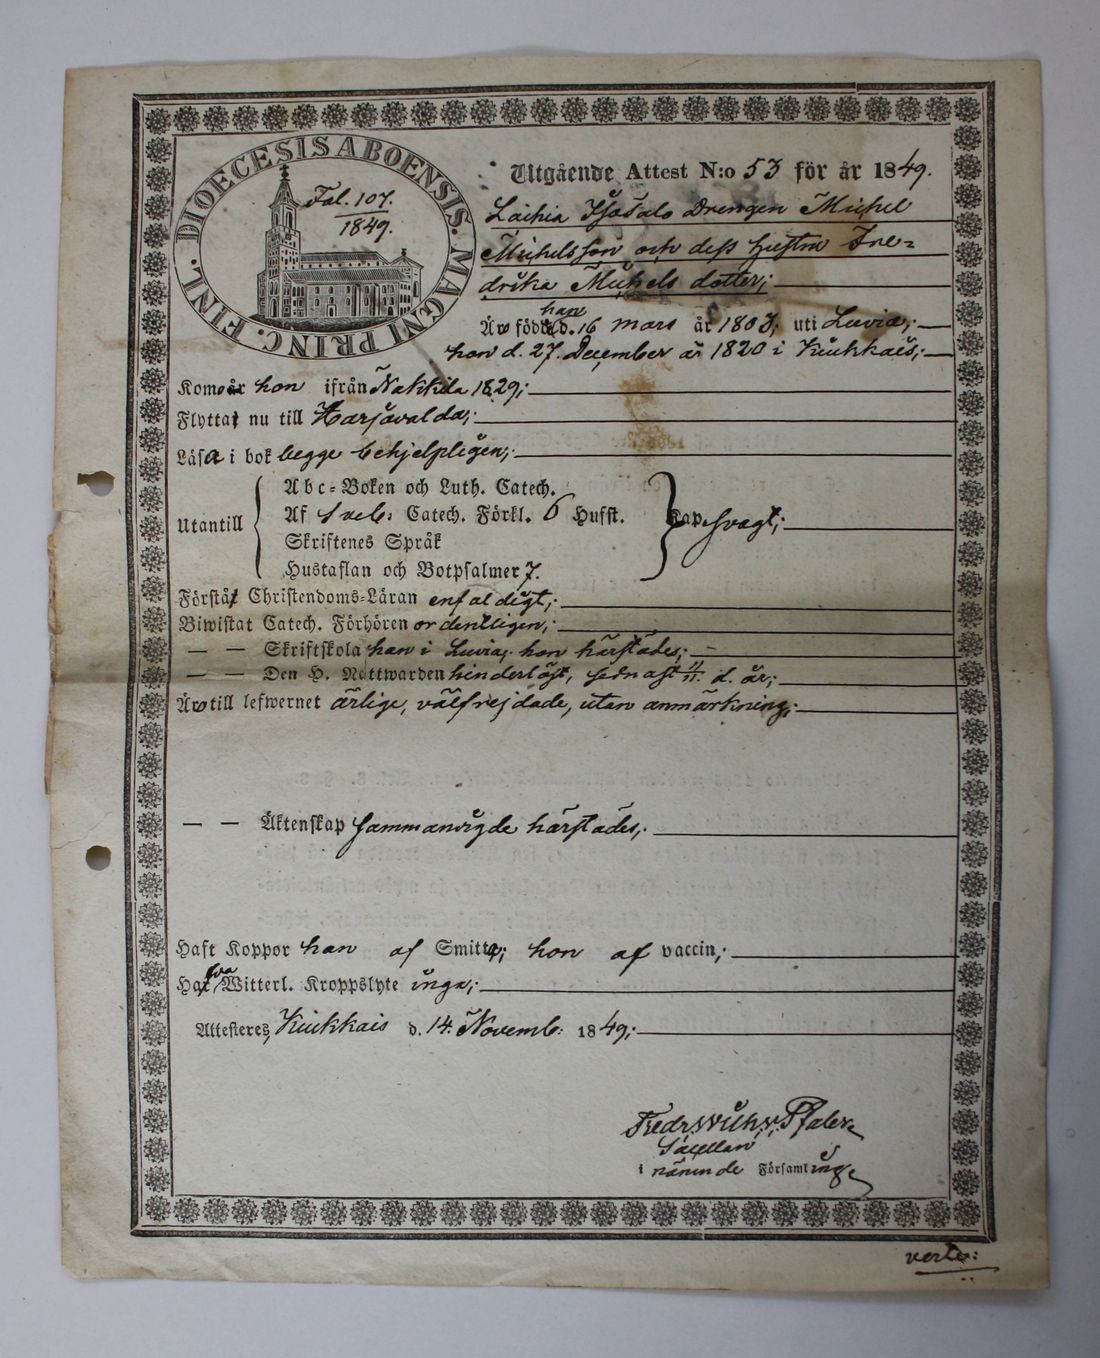 DIOECESIS ABOENSIS. MAGNI PRINC. FINL.
Fol. 107.
1849.
Utgående Attest N:o 53 för år 1849.
Drengen Michel
Michelsson och dess hustru Fre-
drika Michels dotter;
han
Äro född d. 16 mars år 1803; uti Luvia;
hon d. 27. December år 1820 i Kiukkais;
Kom hon ifrån Nakkila 1829;
Flytta nu till Harjavalda;
Läsa i bok begge behjelpligen;
Utantill
Abc-Boken och Luth. Catech.
Af Sveb: Catech. Förkl. 6 Husst.
Skriftenes Språk
Hustaflan och Botpsalmer 7.
Kap. svagt;
Förstå Christendoms-Läran enfaldigt;
Biwistat Catech. Förhören ordentligen;
— — Skriftskola han i Luvia, hon härstädes;
— — Den H. Nattwarden hinderlöst, sednast 4/11 d. år;
Äro till lefwernet ärlige, välfrejdade, utan anmärkning;
— — Äktenskap sammanvigde härstädes;
Haft Koppor han af Smitta; hon af vaccin;
Hafva Witterl. Kroppslyte inga;
Attesteres, Kiukkais d. 14. Novemb: 1849;
Fredr. Wilh. v. Pfaler
Sacellan
i nämnde Församling
verte: